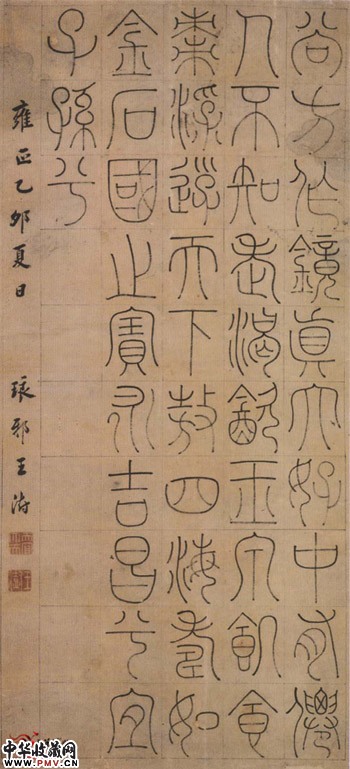 尚方作鏡真大好中有僊
人不知老渴飲玉泉飢食
棗浮遊天下敖四海壽如
金石國之寶永吉昌兮宜
子孫兮
雍正乙卯夏日
琅邪王澍
中华收藏网
www.PMV.CN